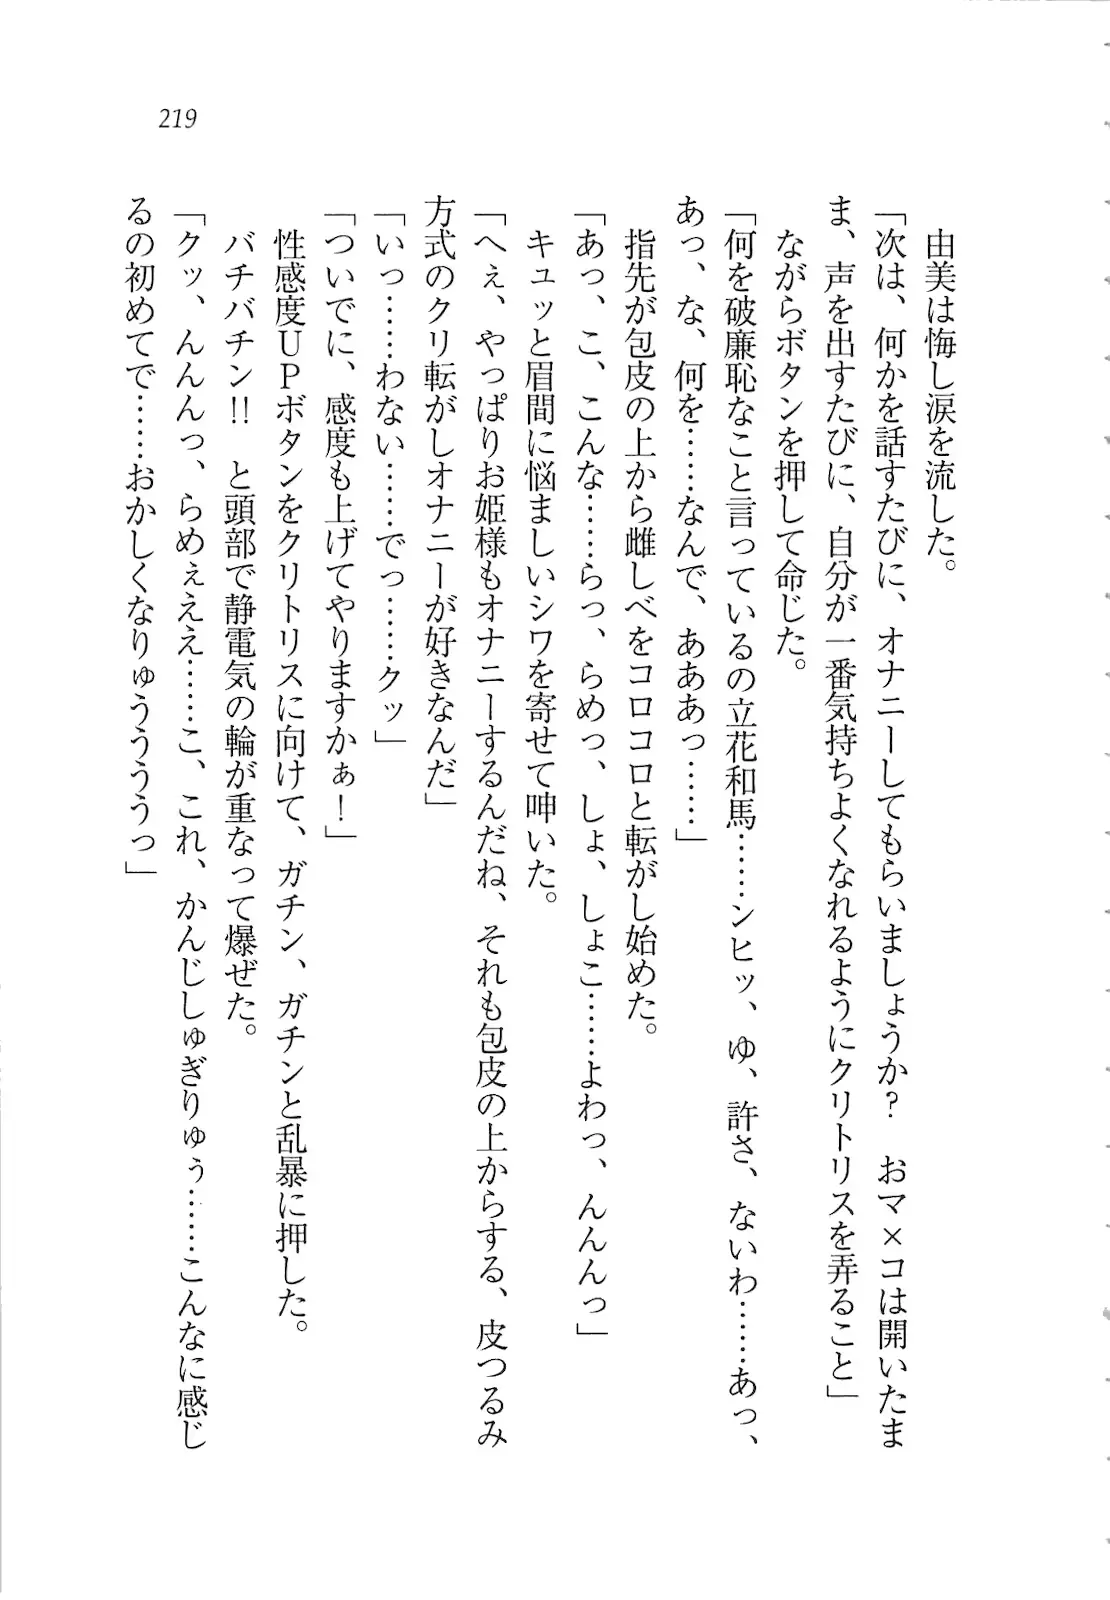 219
由美は悔し涙を流した。
「次は、何かを話すたびに、オナニーしてもらいましょうか?　おマ×コは開いたま
ま、声を出すたびに、自分が一番気持ちよくなれるようにクリトリスを弄ること」
ながらボタンを押して命じた。
「何を破廉恥なこと言っているの立花和馬……ンヒッ、ゆ、許さ、ないわ……あっ、
あっ、な、何を……なんで、あああっ……」
指先が包皮の上から雌しべをコロコロと転がし始めた。
「あっ、こ、こんな……らっ、らめっ、しょ、しょこ……よわっ、んんんっ」
キュッと眉間に悩ましいシワを寄せて呻いた。
「へぇ、やっぱりお姫様もオナニーするんだね、それも包皮の上からする、皮つるみ
方式のクリ転がしオナニーが好きなんだ」
「いっ……わない……でっ……クッ」
「ついでに、感度も上げてやりますかぁ!」
性感度UPボタンをクリトリスに向けて、ガチン、ガチンと乱暴に押した。
バチバチン!!　と頭部で静電気の輪が重なって爆ぜた。
「クッ、んんんっ、らめぇええ……こ、これ、かんじしゅぎりゅぅ……こんなに感じ
るの初めてで……おかしくなりゅうううっ」